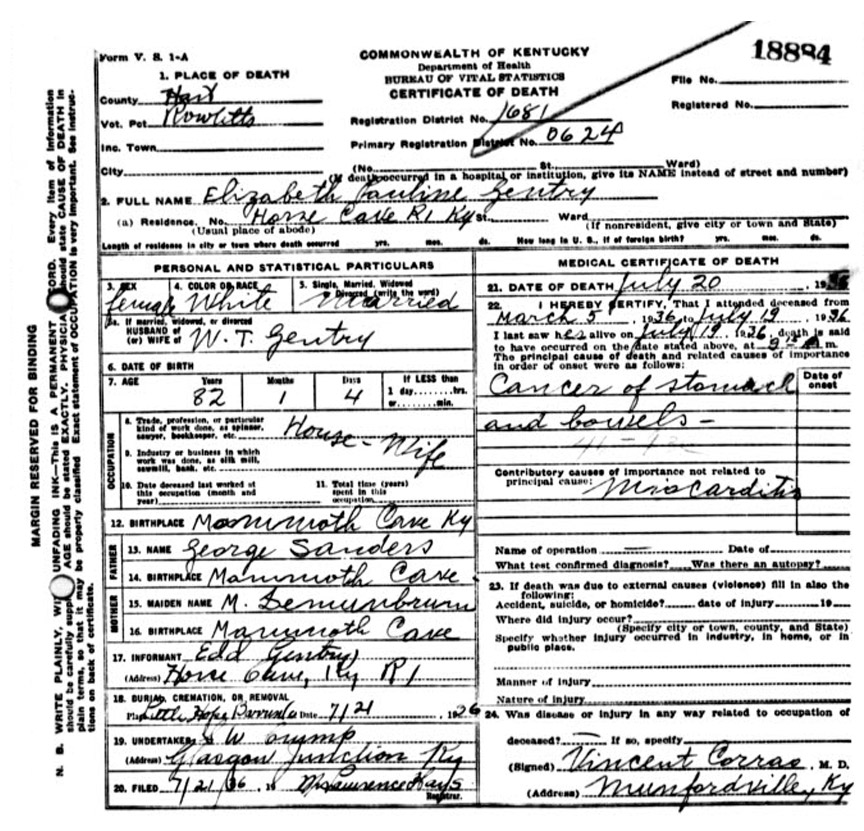 Form V. S. 1-A
COMMONWEALTH OF KENTUCKY
Department of Health
BUREAU OF VITAL STATISTICS
CERTIFICATE OF DEATH
18884
File No.
Registered No.
1. PLACE OF DEATH
County Hart
Vot. Pct Rowletts
Inc. Town
City
Registration District No. 1681
Primary Registration District No. 0624
(No. St. Ward)
(If death occurred in a hospital or institution, give its NAME instead of street and number)
2. FULL NAME Elizabeth Pauline Gentry
(a) Residence. No. Horse Cave R1 Ky St. Ward
(Usual place of abode) (If nonresident, give city or town and State)
Length of residence in city or town where death occurred yrs. mos. ds. How long in U. S., if of foreign birth? yrs. mos. ds.
PERSONAL AND STATISTICAL PARTICULARS
3. SEX female
4. COLOR OR RACE White
5. Single, Married, Widowed or Divorced (write the word) Married
5a. If married, widowed, or divorced
HUSBAND of
(or) WIFE of W. T. Gentry
6. DATE OF BIRTH
7. AGE Years 82 Months 1 Days 4 If LESS than 1 day hrs. or min.
OCCUPATION
8. Trade, profession, or particular kind of work done, as spinner, sawyer, bookkeeper, etc. House-Wife
9. Industry or business in which work was done, as silk mill, sawmill, bank, etc.
10. Date deceased last worked at this occupation (month and year)
11. Total time (years) spent in this occupation
12. BIRTHPLACE Mammoth Cave Ky
FATHER
13. NAME George Sanders
14. BIRTHPLACE Mammoth Cave
MOTHER
15. MAIDEN NAME M. Demunbrum
16. BIRTHPLACE Mammoth Cave
17. INFORMANT Edd Gentry
(Address) Horse Cave, Ky R1
18. BURIAL, CREMATION, OR REMOVAL
Place Little Hope Date 7/21, 1936
19. UNDERTAKER W Crump
(Address) Glasgow Junction Ky
20. FILED 7/21/36, 19 Mrs Lawrence Hays
Registrar.
MEDICAL CERTIFICATE OF DEATH
21. DATE OF DEATH July 20, 1936
22. I HEREBY CERTIFY, That I attended deceased from
March 5, 1936 to July 19, 1936
I last saw her alive on July 19, 1936, death is said
to have occurred on the date stated above, at m.
The principal cause of death and related causes of importance
in order of onset were as follows:
Date of onset
Cancer of stomach
and bowels-
Contributory causes of importance not related to
principal cause:
Miocarditis
Name of operation — Date of
What test confirmed diagnosis? Was there an autopsy?
23. If death was due to external causes (violence) fill in also the
following:
Accident, suicide, or homicide? date of injury 19
Where did injury occur?
(Specify city or town, county, and State)
Specify whether injury occurred in industry, in home, or in
public place.
Manner of injury
Nature of injury
24. Was disease or injury in any way related to occupation of
deceased? — If so, specify
(Signed) Vincent Corrao, M. D.
(Address) Munfordville, Ky
MARGIN RESERVED FOR BINDING
N. B. WRITE PLAINLY, UNFADING INK—THIS IS A PERMANENT Every item of information
should be carefully AGE should be stated EXACTLY. should state CAUSE OF DEATH in
plain terms, so that it may be properly classified. Exact statement of OCCUPATION is very important. See instruc-
tions on back of certificate.